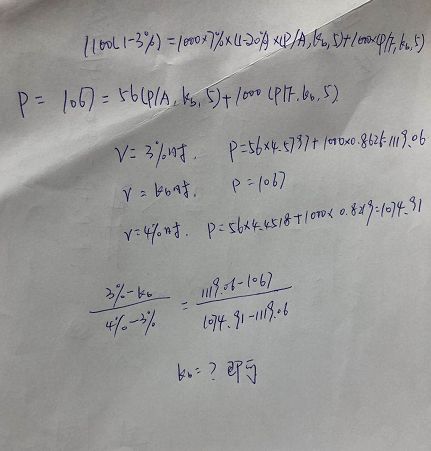 1100(1-3%)=1000×7%×(1-20%)×(P/A,kb,5)+1000×(P/F,kb,5)
P = 1067 = 56(P/A,kb,5)+1000(P/F,kb,5)
r=3%时. P=56×4.5797+1000×0.8626=1119.06
r=kb时. P=1067
r=4%时. P=56×4.4518+1000×0.8219=1074.91
3%-kb / 4%-3% = 1119.06-1067 / 1074.91-1119.06
kb=? 即可